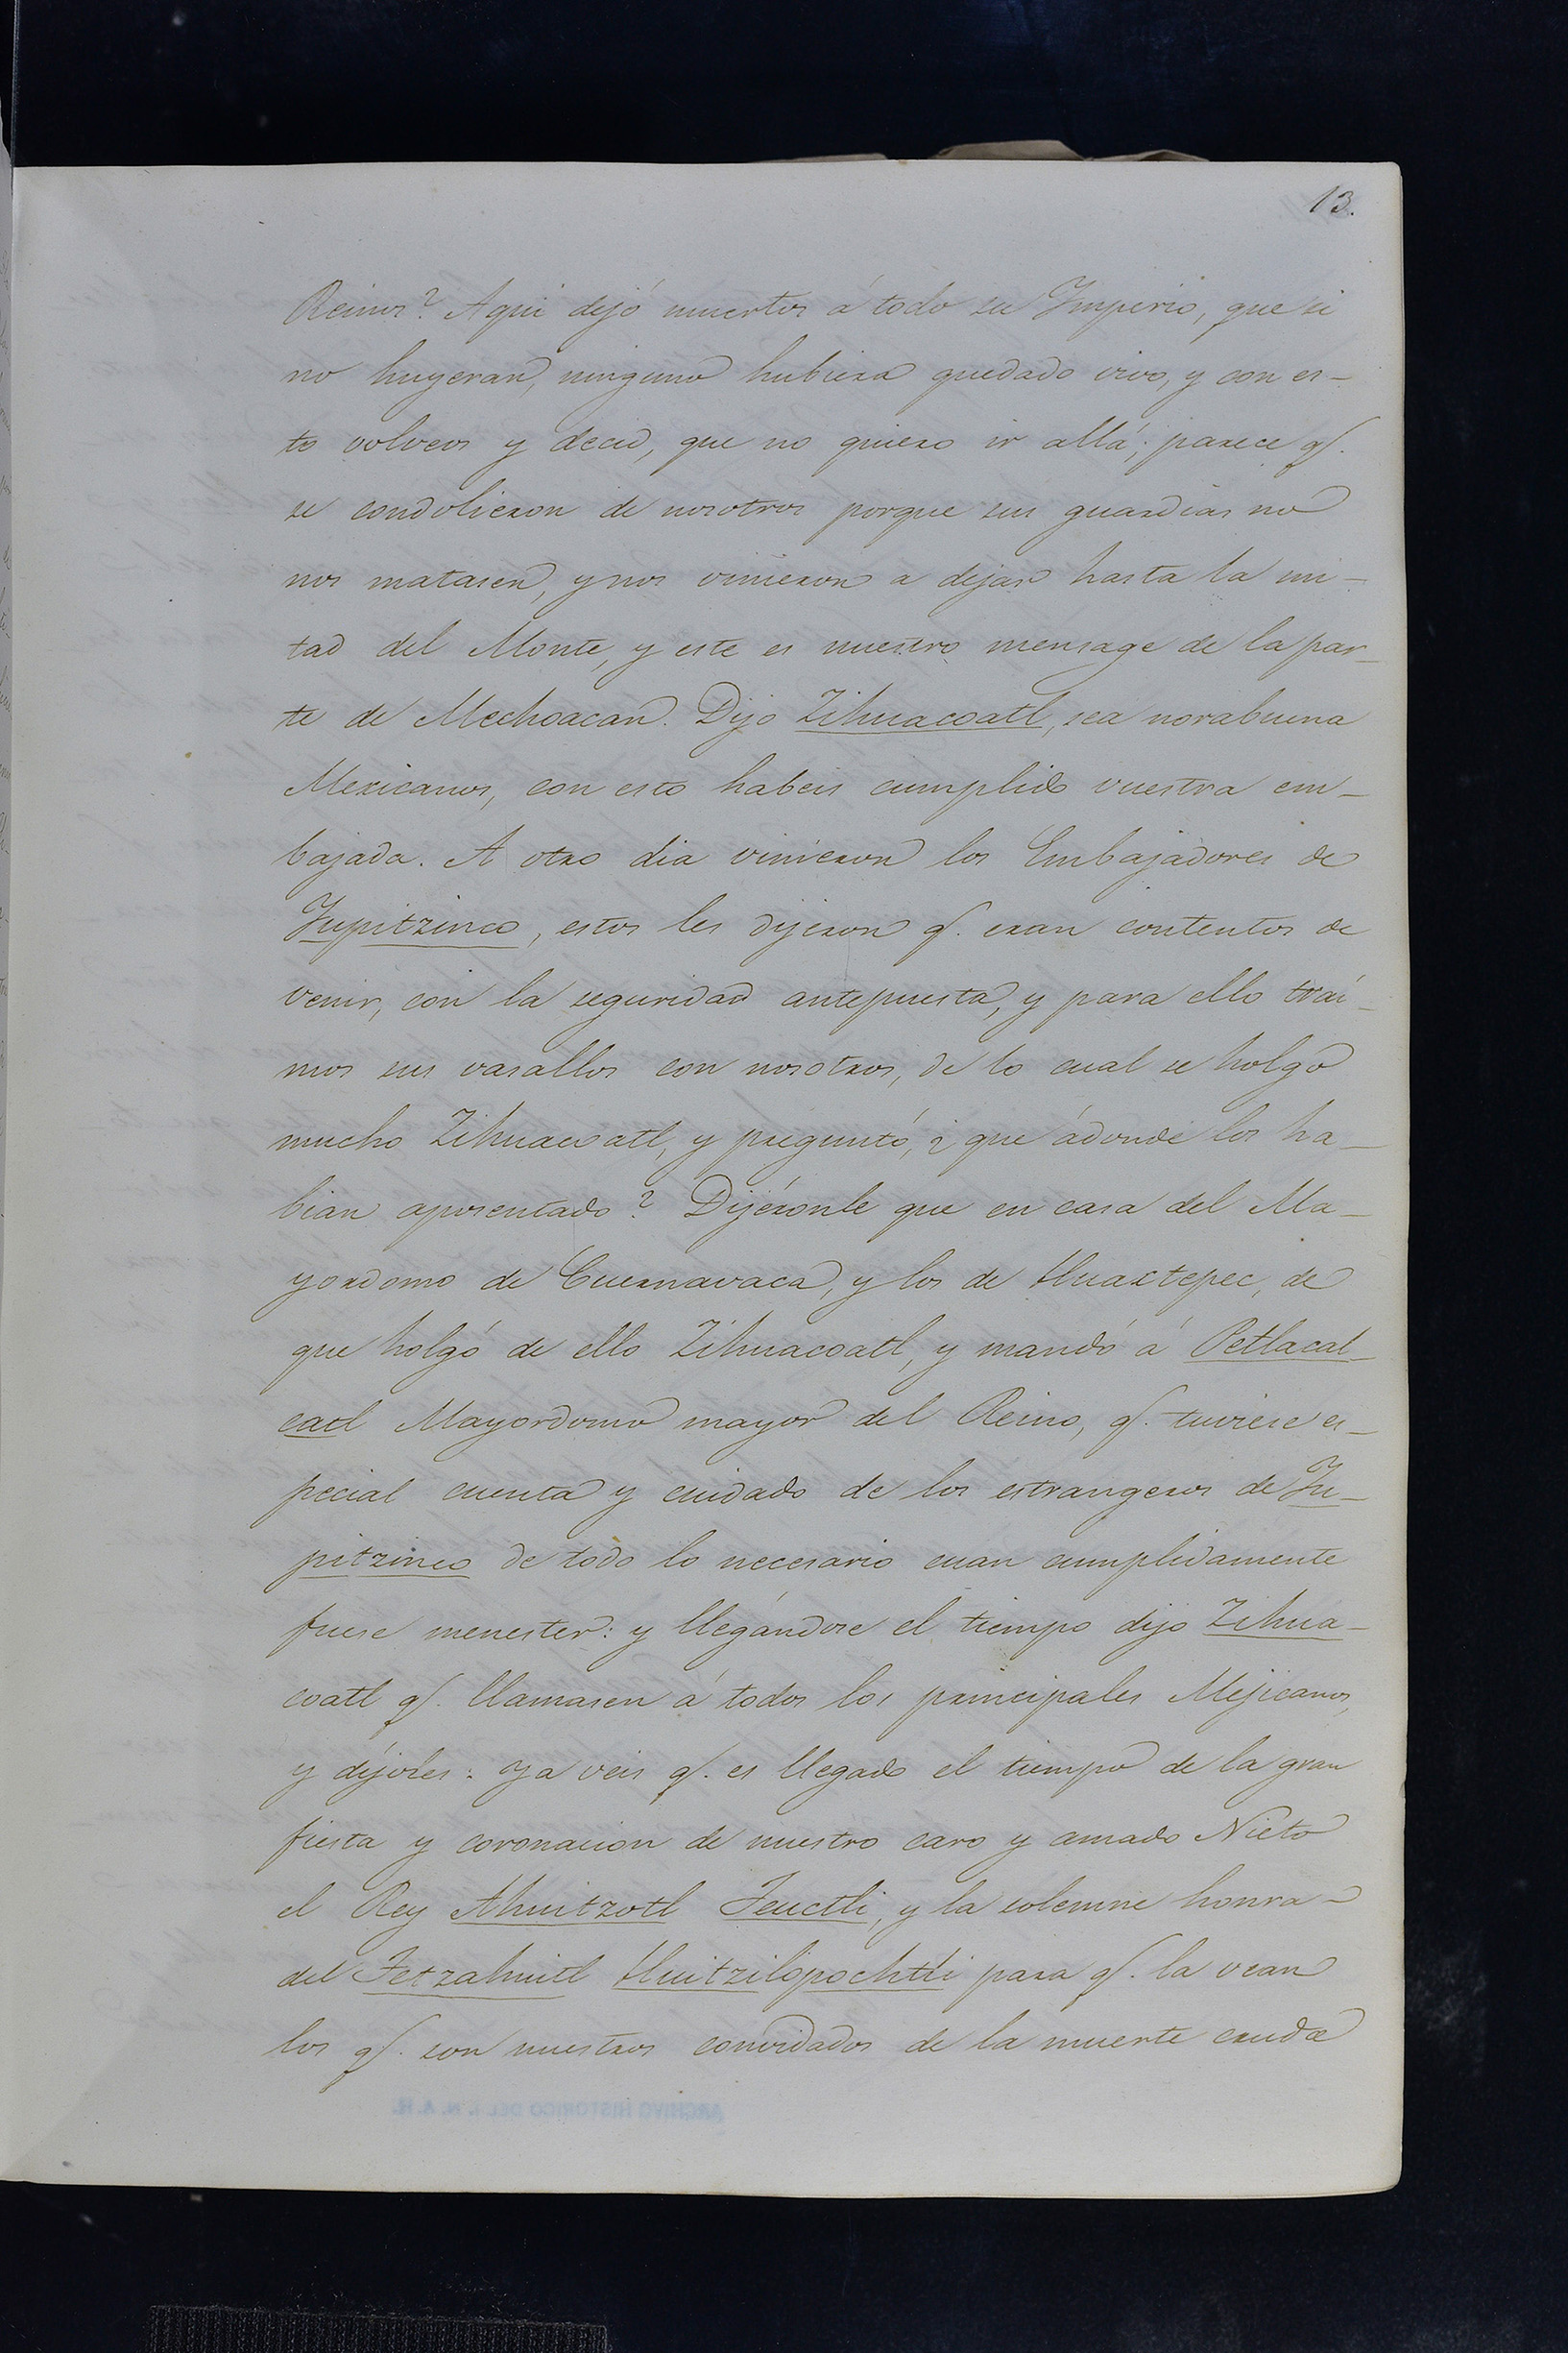 13.
Reinos? Aqui dejó muertos á todo su Imperio, que si
no huyeran, ninguno hubiera quedado vivo, y con es-
to volveos y decid, que no quiero ir allá; parece q.
se condolieron de nosotros porque sus guardias no
nos matasen, y nos vinieron a dejar hasta la mi-
tad del Monte, y este es nuestro mensage de la par-
te de Mechoacan. Dijo Zihuacoatl, sea norabuena
Mexicanos, con esto habeis cumplido vuestra em-
bajada. A otro dia vinieron los Embajadores de
Yupitzinco, estos les dijeron q. eran contentos de
venir, con la seguridad antepuesta, y para ello trai-
mos sus vasallos con nosotros, de lo cual se holgó
mucho Zihuacoatl, y preguntó, ¿ que ádonde los ha-
bian aposentado? Dijéronle que en casa del Ma-
yordomo de Cuernavaca, y los de Huaxtepec, de
que holgó de ello Zihuacoatl, y mandó á Petlacal-
catl Mayordomo mayor del Reino, q. tuviese es-
pecial cuenta y cuidado de los estrangeros de Yu-
pitzinco de todo lo necesario cuan cumplidamente
fuese menester: y llegándose el tiempo dijo Zihua-
coatl q. llamasen á todos los principales Mejicanos,
y díjoles: ya veis q. es llegado el tiempo de la gran
fiesta y coronacion de nuestro caro y amado Nieto
el Rey Ahuitzotl Teuctli, y la solemne honra
del Tetzahuitl Huitzilopochtli para q. la vean
los q. son nuestros convidados de la muerte cruda
ARCHIVO HISTORICO DEL I. N. A. H.